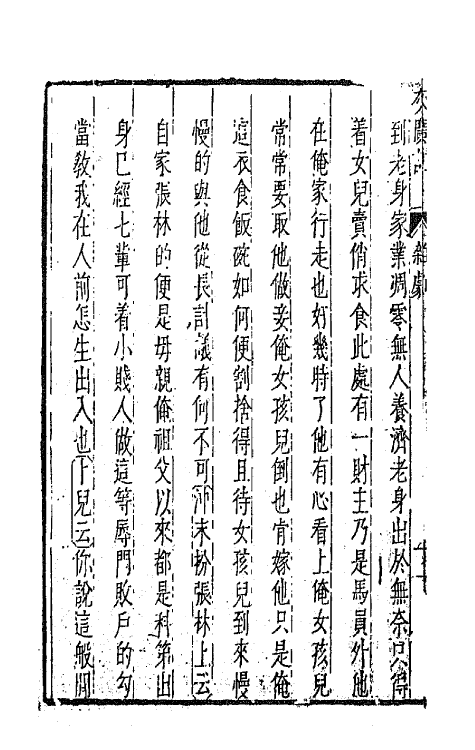 灰闌記 雜劇
到老身家業凋零無人養濟老身出於無奈只得
着女兒賣俏求食此處有一財主乃是馬員外他
在俺家行走也好幾時了他有心看上俺女孩兒
常常要取他做妾俺女孩兒倒也肯嫁他只是俺
這衣食飯碗如何便割捨得且待女孩兒到來慢
慢的與他從長計議有何不可沖末扮張林上云
自家張林的便是母親俺祖父以來都是科第出
身已經七輩可着小賤人做這等辱門敗戶的勾
當教我在人前怎生出入也卜兒云你說這般閒